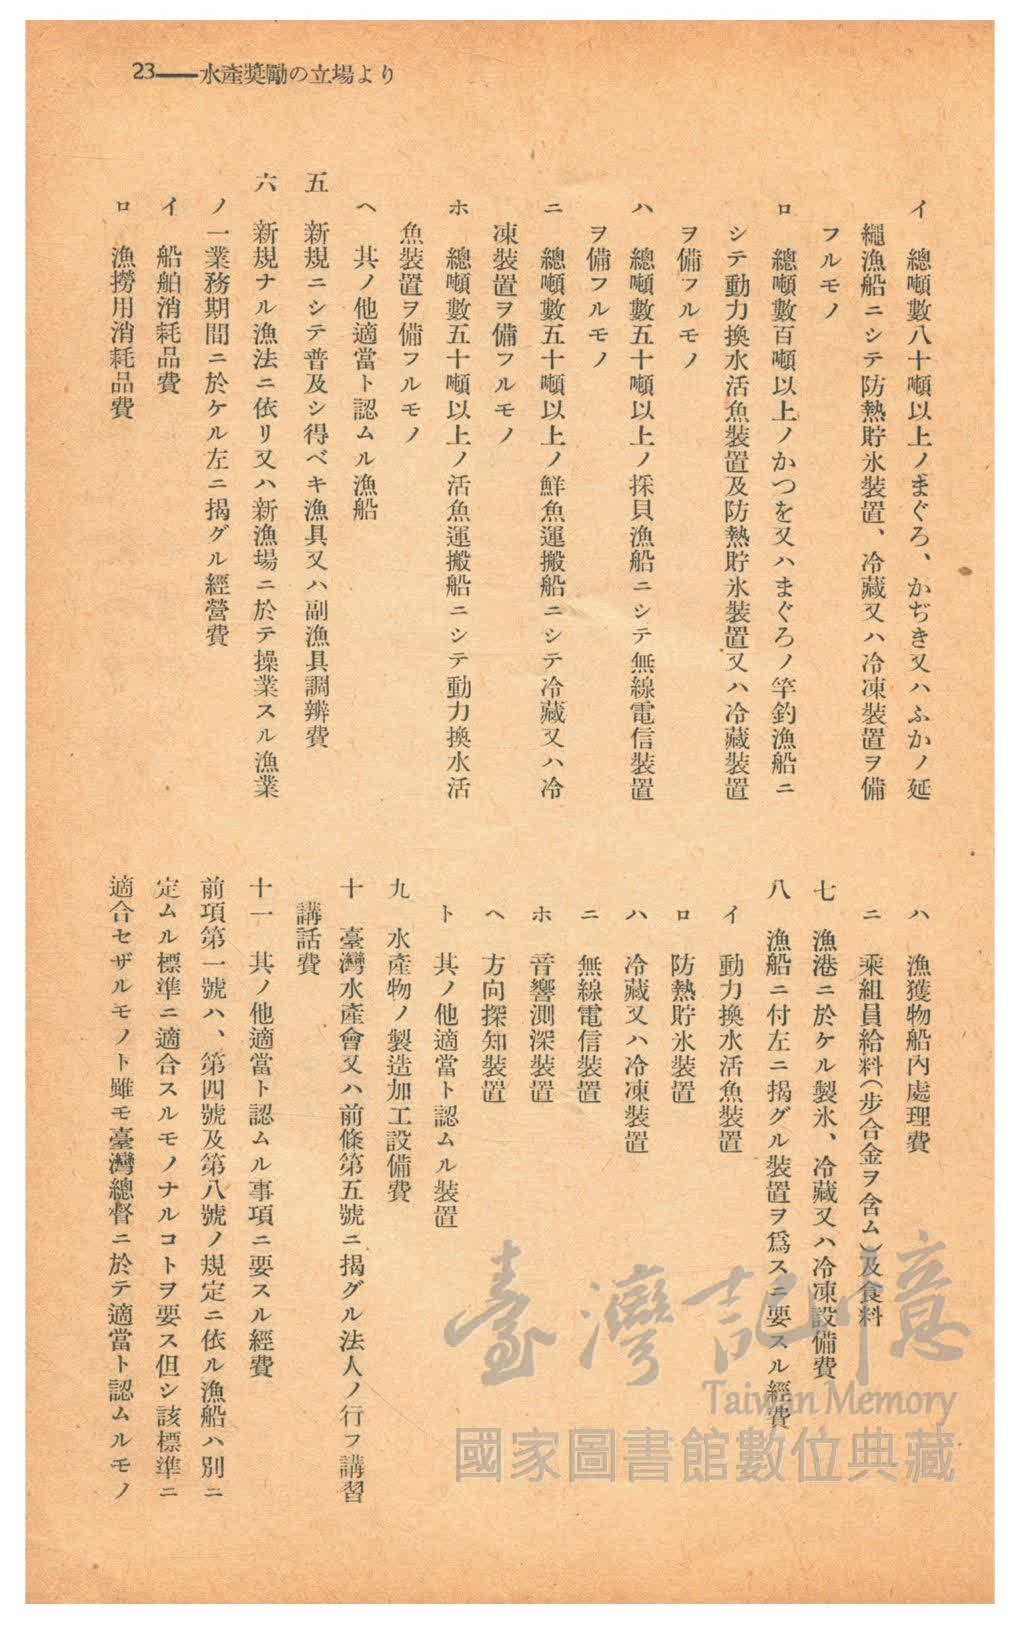 23――水產奬勵の立場より
イ　總噸數八十噸以上ノまぐろ、かぢき又ハふかノ延
繩漁船ニシテ防熱貯氷裝置、冷藏又ハ冷凍裝置ヲ備
フルモノ
ロ　總噸數百噸以上ノかつを又ハまぐろノ竿釣漁船ニ
シテ動力換水活魚裝置及防熱貯氷裝置又ハ冷藏裝置
ヲ備フルモノ
ハ　總噸數五十噸以上ノ採貝漁船ニシテ無線電信裝置
ヲ備フルモノ
ニ　總噸數五十噸以上ノ鮮魚運搬船ニシテ冷藏又ハ冷
凍裝置ヲ備フルモノ
ホ　總噸數五十噸以上ノ活魚運搬船ニシテ動力換水活
魚裝置ヲ備フルモノ
ヘ　其ノ他適當ト認ムル漁船
五　新規ニシテ普及シ得ベキ漁具又ハ副漁具調辨費
六　新規ナル漁法ニ依リ又ハ新漁場ニ於テ操業スル漁業
ノ一業務期間ニ於ケル左ニ揭グル經營費
イ　船舶消耗品費
ロ　漁撈用消耗品費
ハ　漁獲物船內處理費
ニ　乘組員給料（步合金ヲ含ム）及食料
七　漁港ニ於ケル製氷、冷藏又ハ冷凍設備費
八　漁船ニ付左ニ揭グル裝置ヲ爲スニ要スル經費
イ　動力換水活魚裝置
ロ　防熱貯氷裝置
ハ　冷藏又ハ冷凍裝置
ニ　無線電信裝置
ホ　音響測深裝置
ヘ　方向探知裝置
ト　其ノ他適當ト認ムル裝置
九　水產物ノ製造加工設備費
十　臺灣水產會又ハ前條第五號ニ揭グル法人ノ行フ講習
講話費
十一　其ノ他適當ト認ムル事項ニ要スル經費
前項第一號ハ、第四號及第八號ノ規定ニ依ル漁船ハ別ニ
定ムル標準ニ適合スルモノナルコトヲ要ス但シ該標準ニ
適合セザルモノト雖モ臺灣總督ニ於テ適當ト認ムルモノ
臺灣記憶
Taiwan Memory
國家圖書館數位典藏